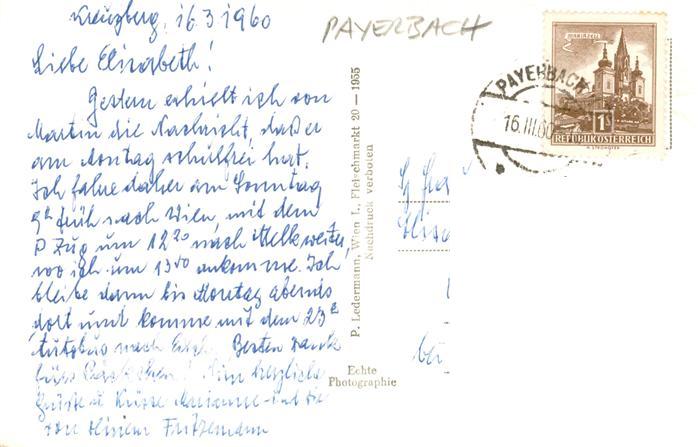 Kreuzberg, 16.3.1960
PAYERBACH
Liebe Elisabeth!
Gestern erhielt ich von
Martin die Nachricht, daß er
am Montag schulfrei hat.
Ich fahre daher am Sonntag
9h früh nach Wien, mit dem
P Zug um 12 20 nach Melk weiter,
wo ich um 13 50 ankomme. Ich
bleibe dann bis Montag abends
dort und komme mit dem 23h
nach Besten Dank
fürs herzliche
Grüße u Küsse Marianne
von
P. Ledermann, Wien I., Fleischmarkt 20 — 1955
Nachdruck verboten
Echte
Photographie
MARIAZELL
1S
REPUBLIK ÖSTERREICH
PAYERBACH
16.III.60